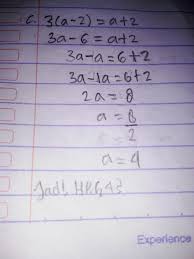 c. 3(a-2) = a+2
3a-6 = a+2
3a-a = 6+2
3a-1a = 6+2
2a = 8
a = 8/2
a = 4
Jadi HP {4}
Experience